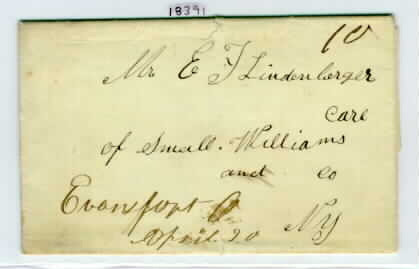 18391
10
Mr E T Lindenberger
care
of Small. Williams
and co
Evansport O
April 20
NY